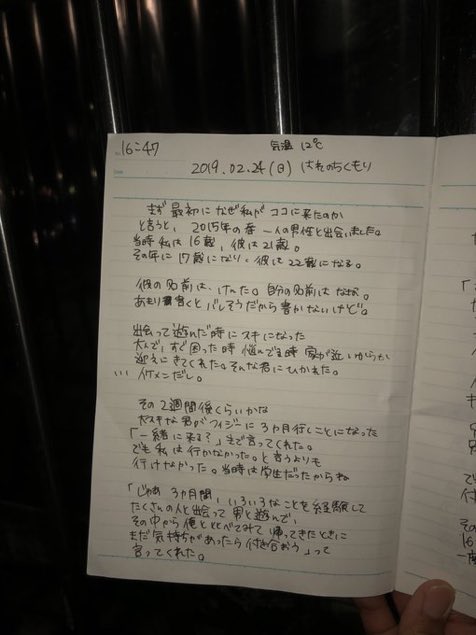 16:47
気温 12℃
2019.02.24(日) はれのちくもり
まず最初になぜ私がココに来たのか
と言うと、2015年の春 一人の男性と出会いました。
当時 私は16歳、彼は21歳。
その年に17歳になり、彼は22歳になる。
彼の名前は、けんた。自分の名前は なな。
あまり書くとバレそうだから書かないけど。
出会って遊んだ時にスキになった
すぐ困った時 悩んでる時 家が近いからか
迎えにきてくれた。そんな君にひかれた。
... イケメンだし。
その2週間後くらいかな
大スキな君がフィジーに3ヵ月行くことになった
「一緒に来る?」まで言ってくれた。
でも私は行かなかった。と言うよりも
行けなかった。当時は学生だったからね
「じゃあ 3ヵ月間、いろいろなことを経験して
たくさんの人と出会って 男と遊んで、
その中から俺とくらべてみて 帰ってきたときに
まだ気持ちがあったら付き合おう」って
言ってくれた。